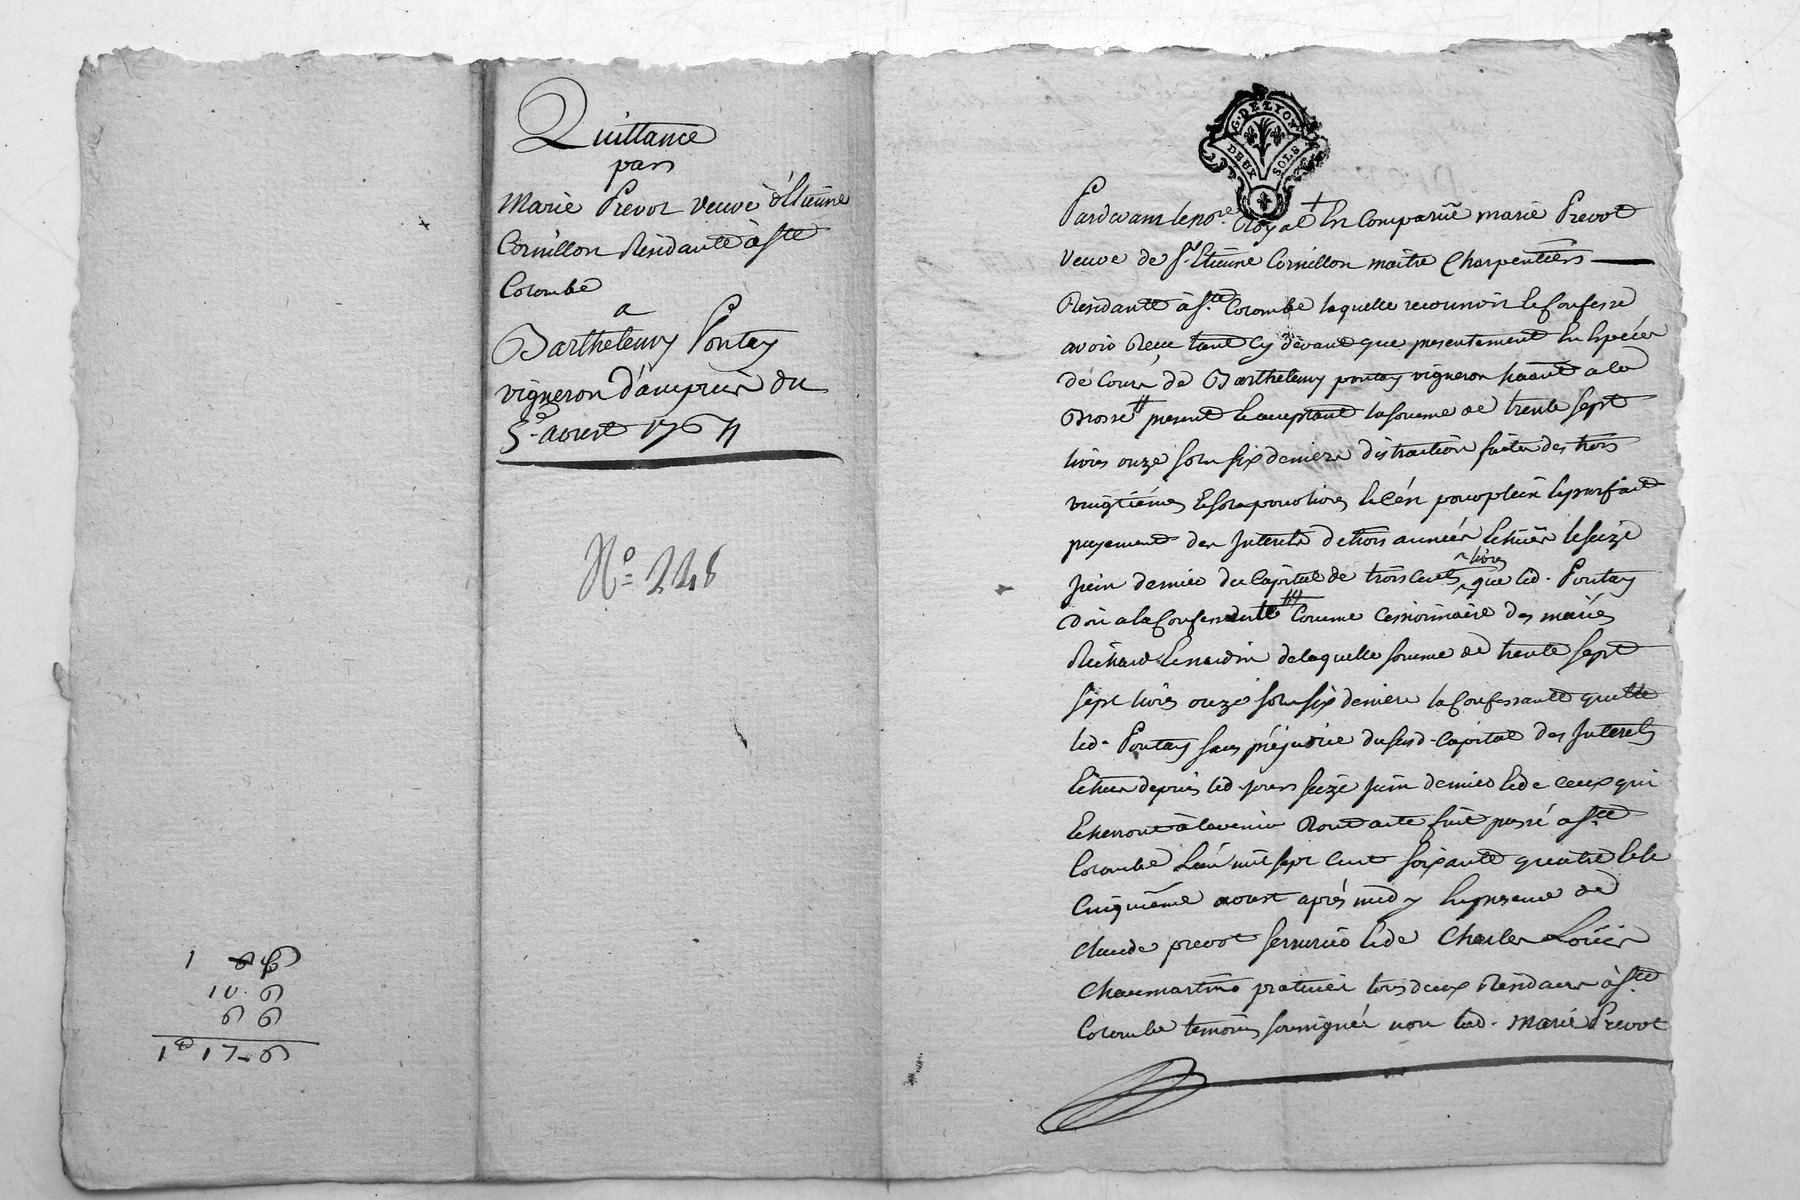 Quittance
par
Marie Prevot veuve d'Etienne
Cornillon Residante à Ste
Colombe
a
Barthelemy Pontay
vigneron d'ampuis du
5e aoust 1764
N° 228
1
10 6
6 6
1# 17 - 6
G. DE LYON
DEUX SOLS
Pardevant le nore Royal Est Comparüe marie Prevot
veuve de Sr Etienne Cornillon maitre Charpentier
Residante à Ste Colombe laquelle reconnoit & Confesse
avoir Reçu tant cy devant que presentement En Especes
de Cours de Barthelemy pontay vigneron hâant a la
Brosse present & acceptant la somme de trente sept
livres onze sols six deniers distraction faite des trois
vingtièmes & sols pour livres & C'est pour plein & parfait
payement des Interets de trois années Echües le seize
juin dernier du Capital de trois cent livres que led. Pontay
Doit a la Confessante Comme Cessionnaire des mariés
Richard de laquelle somme de trente sept
sept livres onze sols six deniers la Confessante quitte
led. Pontay sans préjudice du susd. Capital des Interets
Echus depuis led. jour seize juin dernier & de ceux qui
Echerront à l'avenir Dont acte fait passé à Ste
Colombe L'an mil sept cent soixante quatre & le
Cinquième aoust après midy En presence de
Claude prevot serrurier & de Charles Loüis
Chaumartin praticien tous deux Residants à Ste
Colombe temoins soussignés non lad. Marie Prevot